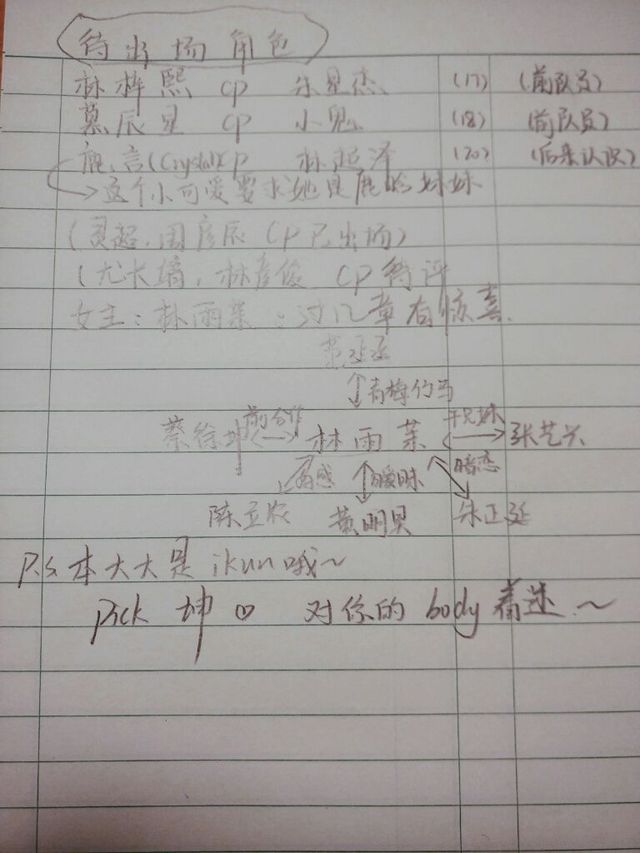 待出场角色
林梓熙 cp 朱星杰 (17) (前队员)
慕辰星 cp 小鬼 (18) (前队员)
鹿言(Crystal)cp 林超泽 (20) (后来认识)
→这个小可爱要求她是鹿哈妹妹
(灵超,周彦辰 CP已出场)
(尤长靖,林彦俊 CP待评
女主:林雨茱:过几章有惊喜
范丞丞
青梅竹马
蔡徐坤 前合作 林雨茱 干兄妹 张艺兴
好感 暧昧 暗恋
陈立农 黄明昊 朱正廷
P.s本大大是ikun哦~
Pick 坤♡ 对你的body着迷.~